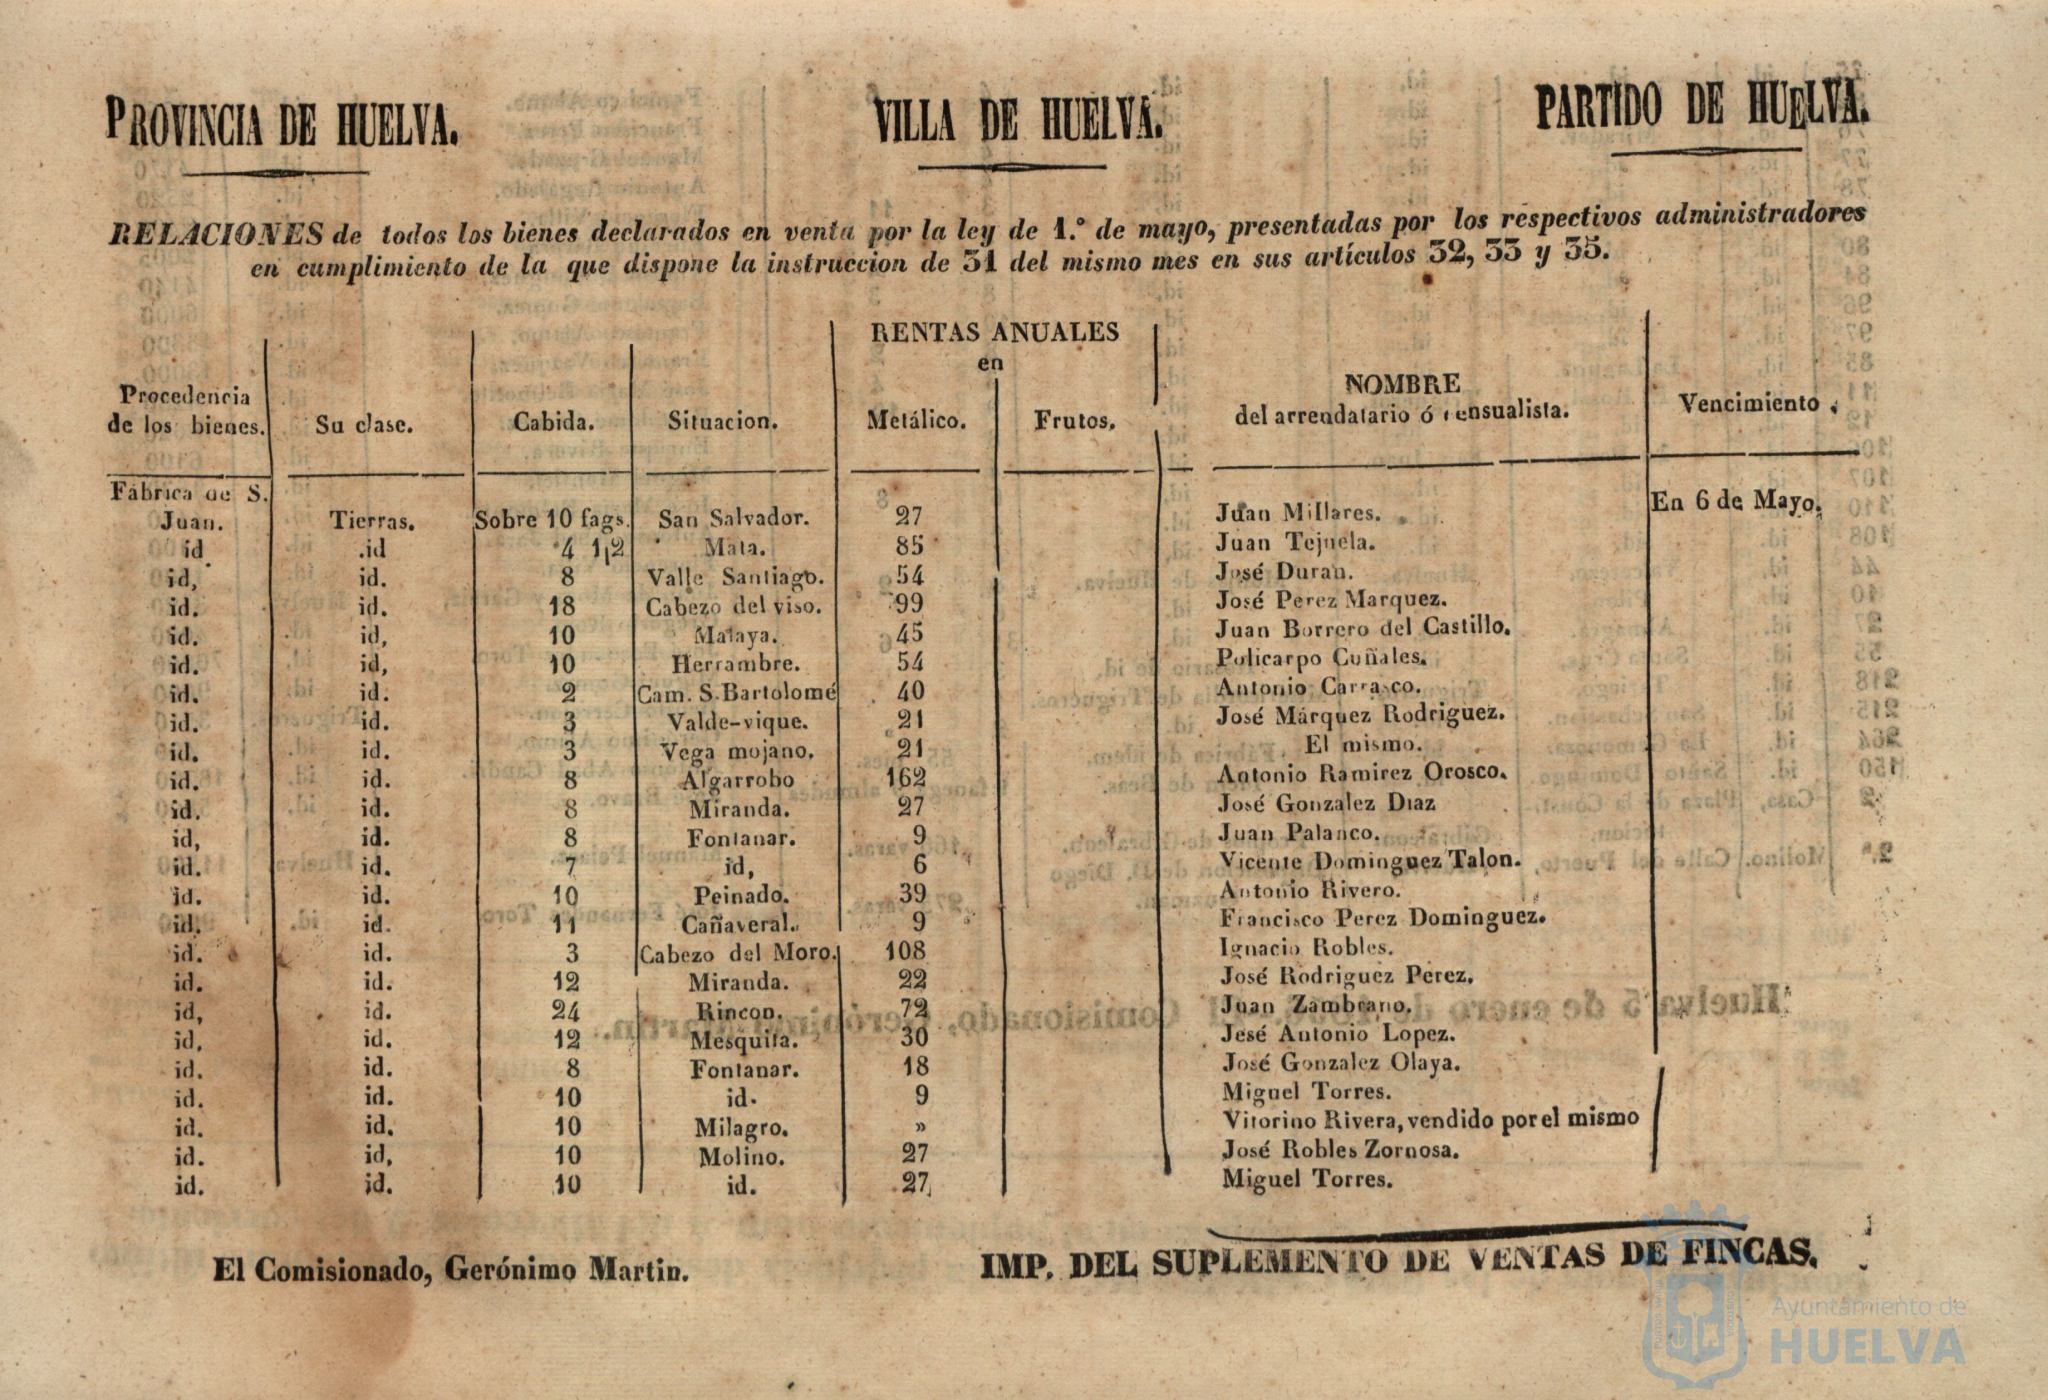 PROVINCIA DE HUELVA. VILLA DE HUELVA. PARTIDO DE HUELVA.
RELACIONES de todos los bienes declarados en venta por la ley de 1.º de mayo, presentadas por los respectivos administradores
en cumplimiento de la que dispone la instruccion de 31 del mismo mes en sus artículos 32, 33 y 35.
RENTAS ANUALES
en
Procedencia NOMBRE
de los bienes. Su clase. Cabida. Situacion. Metálico. Frutos. del arrendatario ó censualista. Vencimiento.
Fábrica de S. En 6 de Mayo.
Juan. Tierras. Sobre 10 fags. San Salvador. 27 Juan Millares.
id .id 4 1|2 Mata. 85 Juan Tejuela.
id, id. 8 Valle Santiago. 54 José Duran.
id. id. 18 Cabezo del viso. 99 José Perez Marquez.
id. id, 10 Malaya. 45 Juan Borrero del Castillo.
id. id, 10 Herrambre. 54 Policarpo Cuñales.
id. id. 2 Cam. S. Bartolomé 40 Antonio Carrasco.
id. id. 3 Valde-vique. 21 José Márquez Rodriguez.
id. id. 3 Vega mojano. 21 El mismo.
id. id. 8 Algarrobo 162 Antonio Ramirez Orosco.
id. id. 8 Miranda. 27 José Gonzalez Diaz
id, id. 8 Fontanar. 9 Juan Palanco.
id. id. 7 id, 6 Vicente Dominguez Talon.
id. id. 10 Peinado. 39 Antonio Rivero.
id. id. 11 Cañaveral. 9 Francisco Perez Dominguez.
id. id. 3 Cabezo del Moro. 108 Ignacio Robles.
id. id. 12 Miranda. 22 José Rodriguez Perez.
id, id. 24 Rincon. 72 Juan Zambrano.
id, id. 12 Mesquita. 30 Jesé Antonio Lopez.
id. id. 8 Fontanar. 18 José Gonzalez Olaya.
id. id. 10 id. 9 Miguel Torres.
id. id. 10 Milagro. » Vitorino Rivera, vendido por el mismo
id. id, 10 Molino. 27 José Robles Zornosa.
id. id. 10 id. 27 Miguel Torres.
El Comisionado, Gerónimo Martin. IMP. DEL SUPLEMENTO DE VENTAS DE FINCAS.
Ayuntamiento de
HUELVA